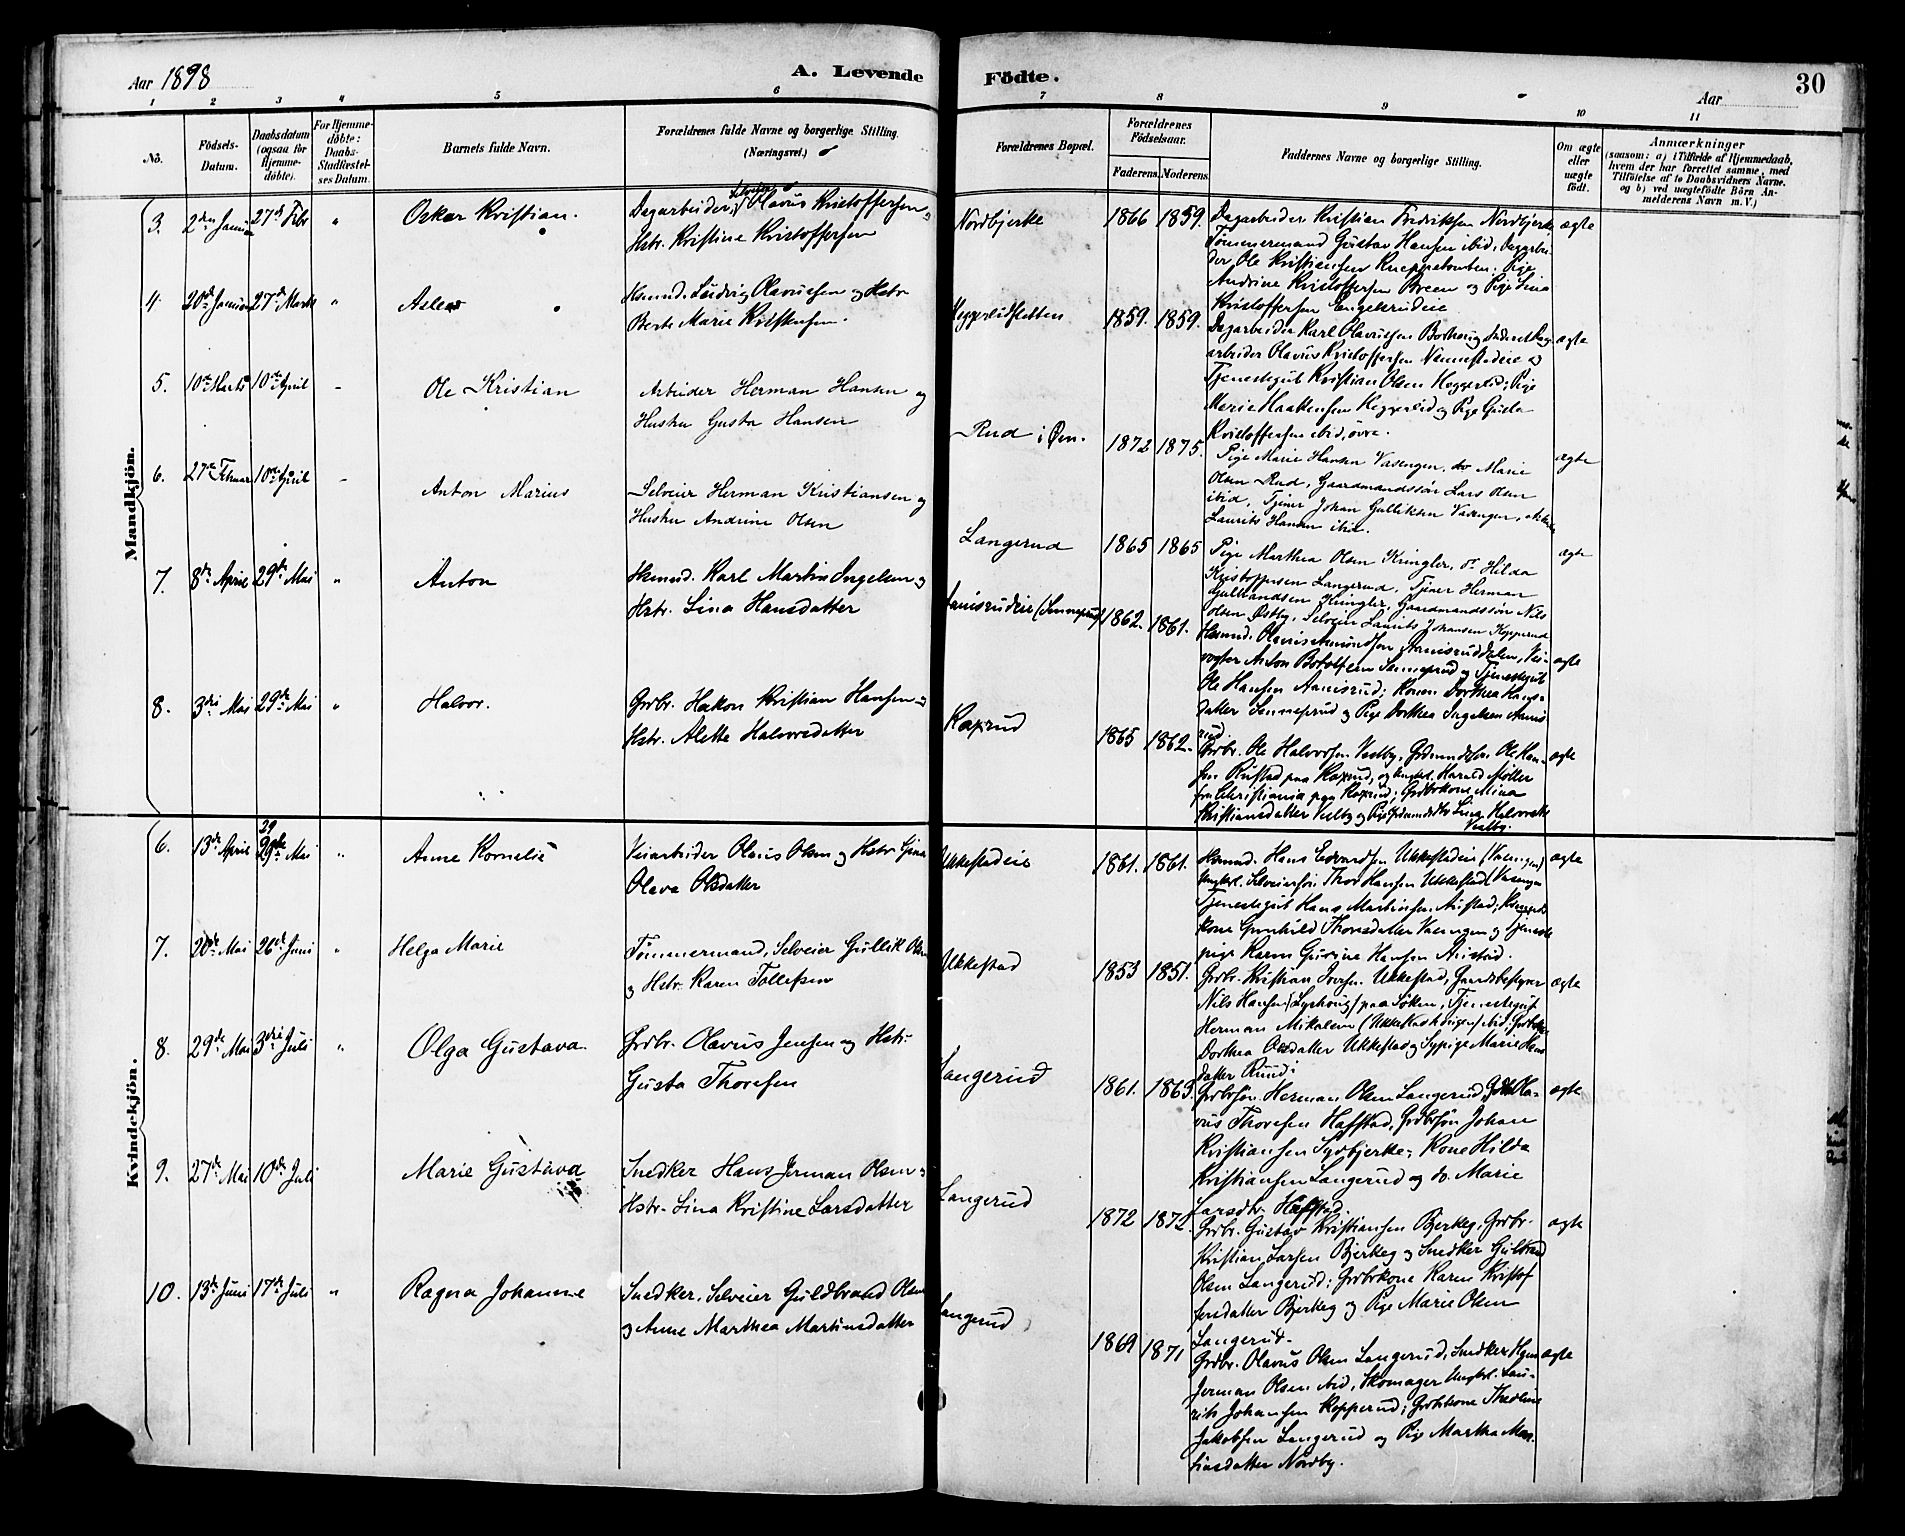 Aar 1898
A. Levende Födte.
Aar
30
1 2 3 4 5 6 7 8 9 10 11
No.
Födsels-
Datum.
Daabsdatum
(ogsaa for
Hjemme-
döbte).
For Hjemme-
döbte:
Daabs-
Stadfæstel-
ses Datum.
Barnets fulde Navn.
Forældrenes fulde Navne og borgerlige Stilling.
(Næringsvei.)
Forældrenes Bopæl.
Forældrenes
Födselsaar.
Faderens. Moderens.
Faddernes Navne og borgerlige Stilling.
Om ægte
eller
uægte
födt.
Anmærkninger
(saasom: a) i Tilfælde af Hjemmedaab,
hvem der har forrettet samme, med
Tilföielse af to Daabsvidners Navne.
og b) ved uægtefödte Börn An-
melderens Navn m.V.)
Mandkjön.
3. 2den Januar 27de Febr " Oskar Kristian.
Dagarbeider, Selveier Olavus Kristoffersen
Hstr. Kristine Kristoffersen
Nordbjerke 1866 1859.
Dagarbeider Kristian Fredriksen Nordbjerke
Tømmermand Gustav Hansen ibid, Dagarbei-
der Ole Kristiansen Pige
Andrine Kristoffersen Breen og Pige Lina
Kristoffersen Engelsrudeie
ægte
4. 20de Januar 27de Marts " Aslew
Hsmnd. Ludvig Olavesen og Hstr
Berte Marie Kristensen.
Heggelisletten 1859. 1859.
Dagarbeider Karl Olavesen Dag-
arbeider Olavus Kristoffersen Nannestadeie og
Tjenestegut Kristian Olsen Heggelid; Pige
Marie Haakensen Heggelid og Pige Gusta
Kristoffersen ibid, øvre.
ægte
5. 10de Marts 10de April - Ole Kristian
Arbeider Herman Hansen og
Hustru Gusta Hansen
Rud i Øen. 1872 1875.
Pige Marie Hansen Vasengen, do Marie
Olsen Rud, Gaardmandssøn Lars Olsen
ibid, Tjener Johan Gulliksen Vasengen,
Laurits Hansen ibid.
ægte
6. 27de Februar 10de April - Anton Marius
Selveier Herman Kristiansen og
Hustru Andrine Olsen
Langerud 1865 1865
Pige Marthea Olsen Kringler, do Hilda
Kristoffersen Langerud, Tjener Herman
Gulbrandsen Kringler, Gaardmandssøn Nils
Olsen Østby, Selveier Laurits Johansen Kopperud
ægte
7. 8de April 29de Mai " Anton
Hsmnd. Karl Martin Ingelsen og
Hstr. Lina Hansdatter
Aamisrudeie (Sennerud) 1862. 1861.
Hsmnd. Olavus Amundsen Aamisruddalen, Vei-
vogter Anton Botolfsen Senneprud og Tjenestegut
Ole Hansen Aamisrud; Konen Dorthea Hans-
datter Senneprud og Pige Dorthea Ingelsen Aamis-
rud.
ægte
8. 3die Mai 29de Mai " Halvor.
Grdbr. Hakon Kristian Hansen og
Hstr. Alette Halvorsdatter
Raxrud 1865 1862.
Grdbr. Ole Halvorsen Vestby, Grdmandsøn Ole Han-
sen Rustad paa Raxrud, og Ungkl. Harald Møller
fra Christiania paa Raxrud; Grdbrkone Mina
Kristiansdatter Vestby og Pige Lina Halvorsdtr
Vestby.
ægte
Kvindekjön.
6. 13de April 29de Mai " Anne Kornelie
Veiarbeider Olaus Olsen og Hstr Gina
Olava Olsdatter
Ukkestadeie 1861. 1861.
Hsmnd. Hans Edvardsen Ukkestadeie (Vasengen)
Ungkrl. Selveiersøn Thor Hansen Ukkestad (Vasengen
Tjenestegut Hans Martinsen Austad;
kone Gunhild Thorsdatter Vasengen og Tjeneste-
pige Karen Gurine Hansen Austad.
ægte
7. 20de Mai 26de Juni " Helga Marie
Tømmermand, Selveier Gullik Olsen
og Hstr. Karen Tollefsen
Ukkestad 1853 1851.
Grdbr. Kristian Iversen Ukkestad, Gaardsbestyrer
Nils Hansen (Lyshaug) paa Søken, Tjenestegut
Herman Mikalsen (Ukkestadhaugen) ibid;
Dorthea Olsdatter Ukkestad og Sypige Marie Hans
datter Ruud;
ægte
8. 29de Mai 3die Juli " Olga Gustava
Grdbr. Olavus Jensen og Hstr.
Gusta Thoresen
Langerud 1861. 1863.
Grdbrsøn Herman Olsen Langerud, Ola-
vus Thoresen Hafstad, Grdbrsøn Johan
Kristiansen Sydbjerke; Kone Hilda
Kristiansen Langerud og do. Marie
Larsdtr. Hafstad.
ægte
9. 27de Mai 10de Juli Marie Gustava
Snedker Hans Jerman Olsen og
Hstr. Lina Kristine Larsdatter
Langerud 1872 1872.
Grdbr. Gustav Kristiansen Bjerkeg, Grdbr.
Kristian Larsen Bjerkeg og Snedker Gulbrand
Olsen Langerud; Grdbrkone Karen Kristof-
fersdatter Bjerkeg og Pige Marie Olsen
Langerud.
ægte
10. 13de Juni 17de Juli " Ragna Johanne
Snedker, Selveier Guldbrand Olsen
og Anne Marthea Martinsdatter
Langerud 1869 1871
Grdbr. Olavus Olsen Langerud, Snedker Hans
Jerman Olsen ibid, Skomager Ungkrl. Lau-
rits Johansen Kopperud; Grdbrkone Thedline
Jakobsen Langerud og Pige Martha Mar-
tinsdatter Nordby.
ægte